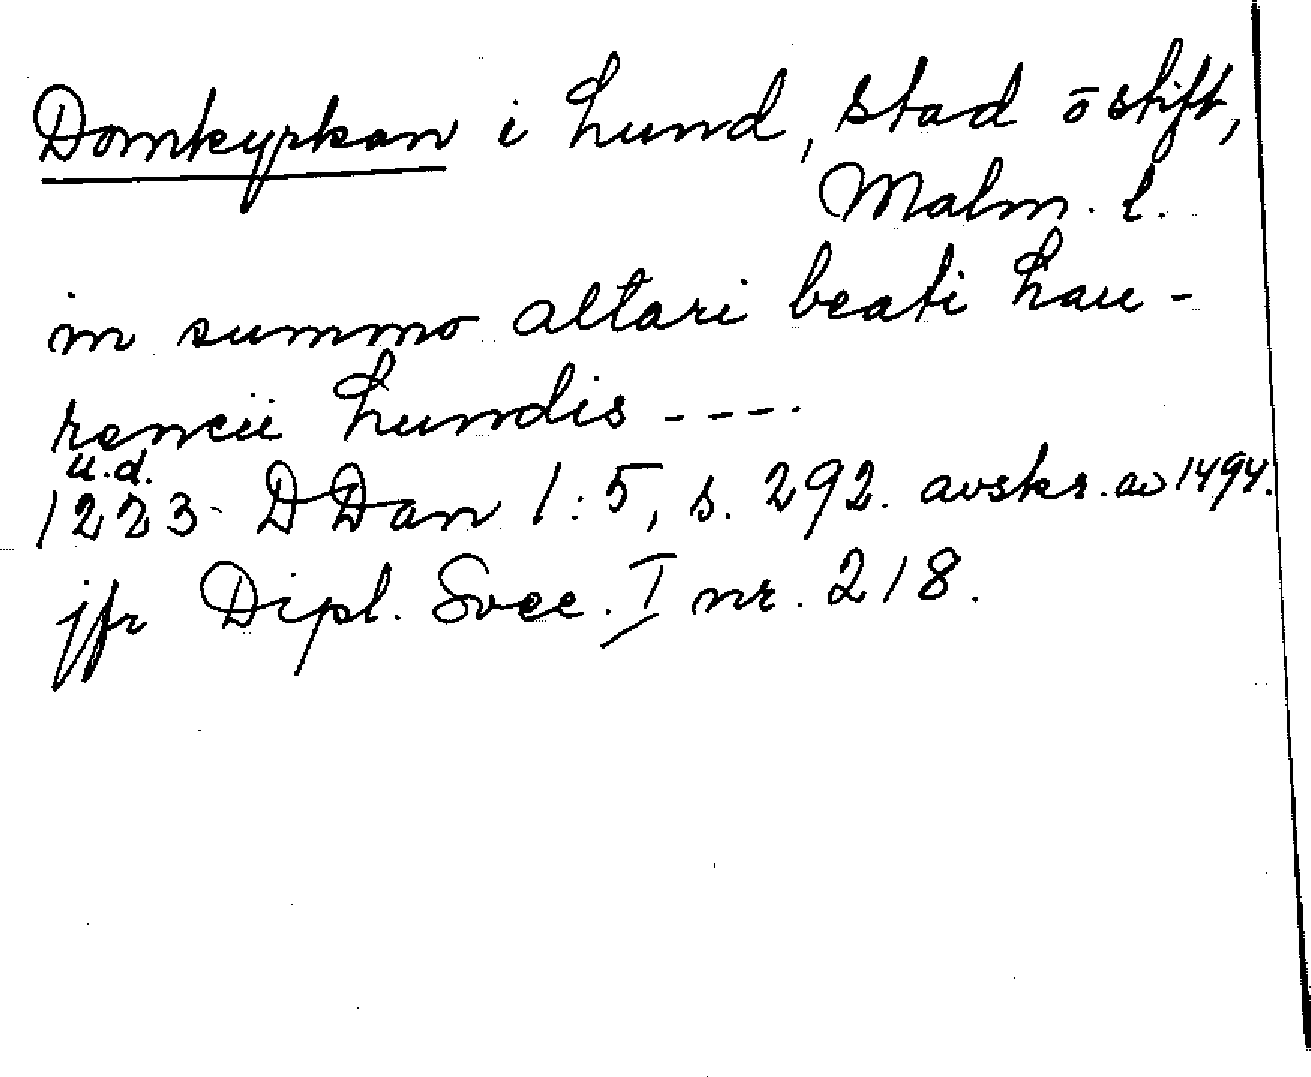 Domkyrkan i Lund, stad o stift,
Malm. l.
in summo altari beati Lau-
rencii Lundis ----.
u.d.
1223 DDan 1:5, s. 292. avskr. av 1494.
jfr Dipl. Svec. I nr. 218.